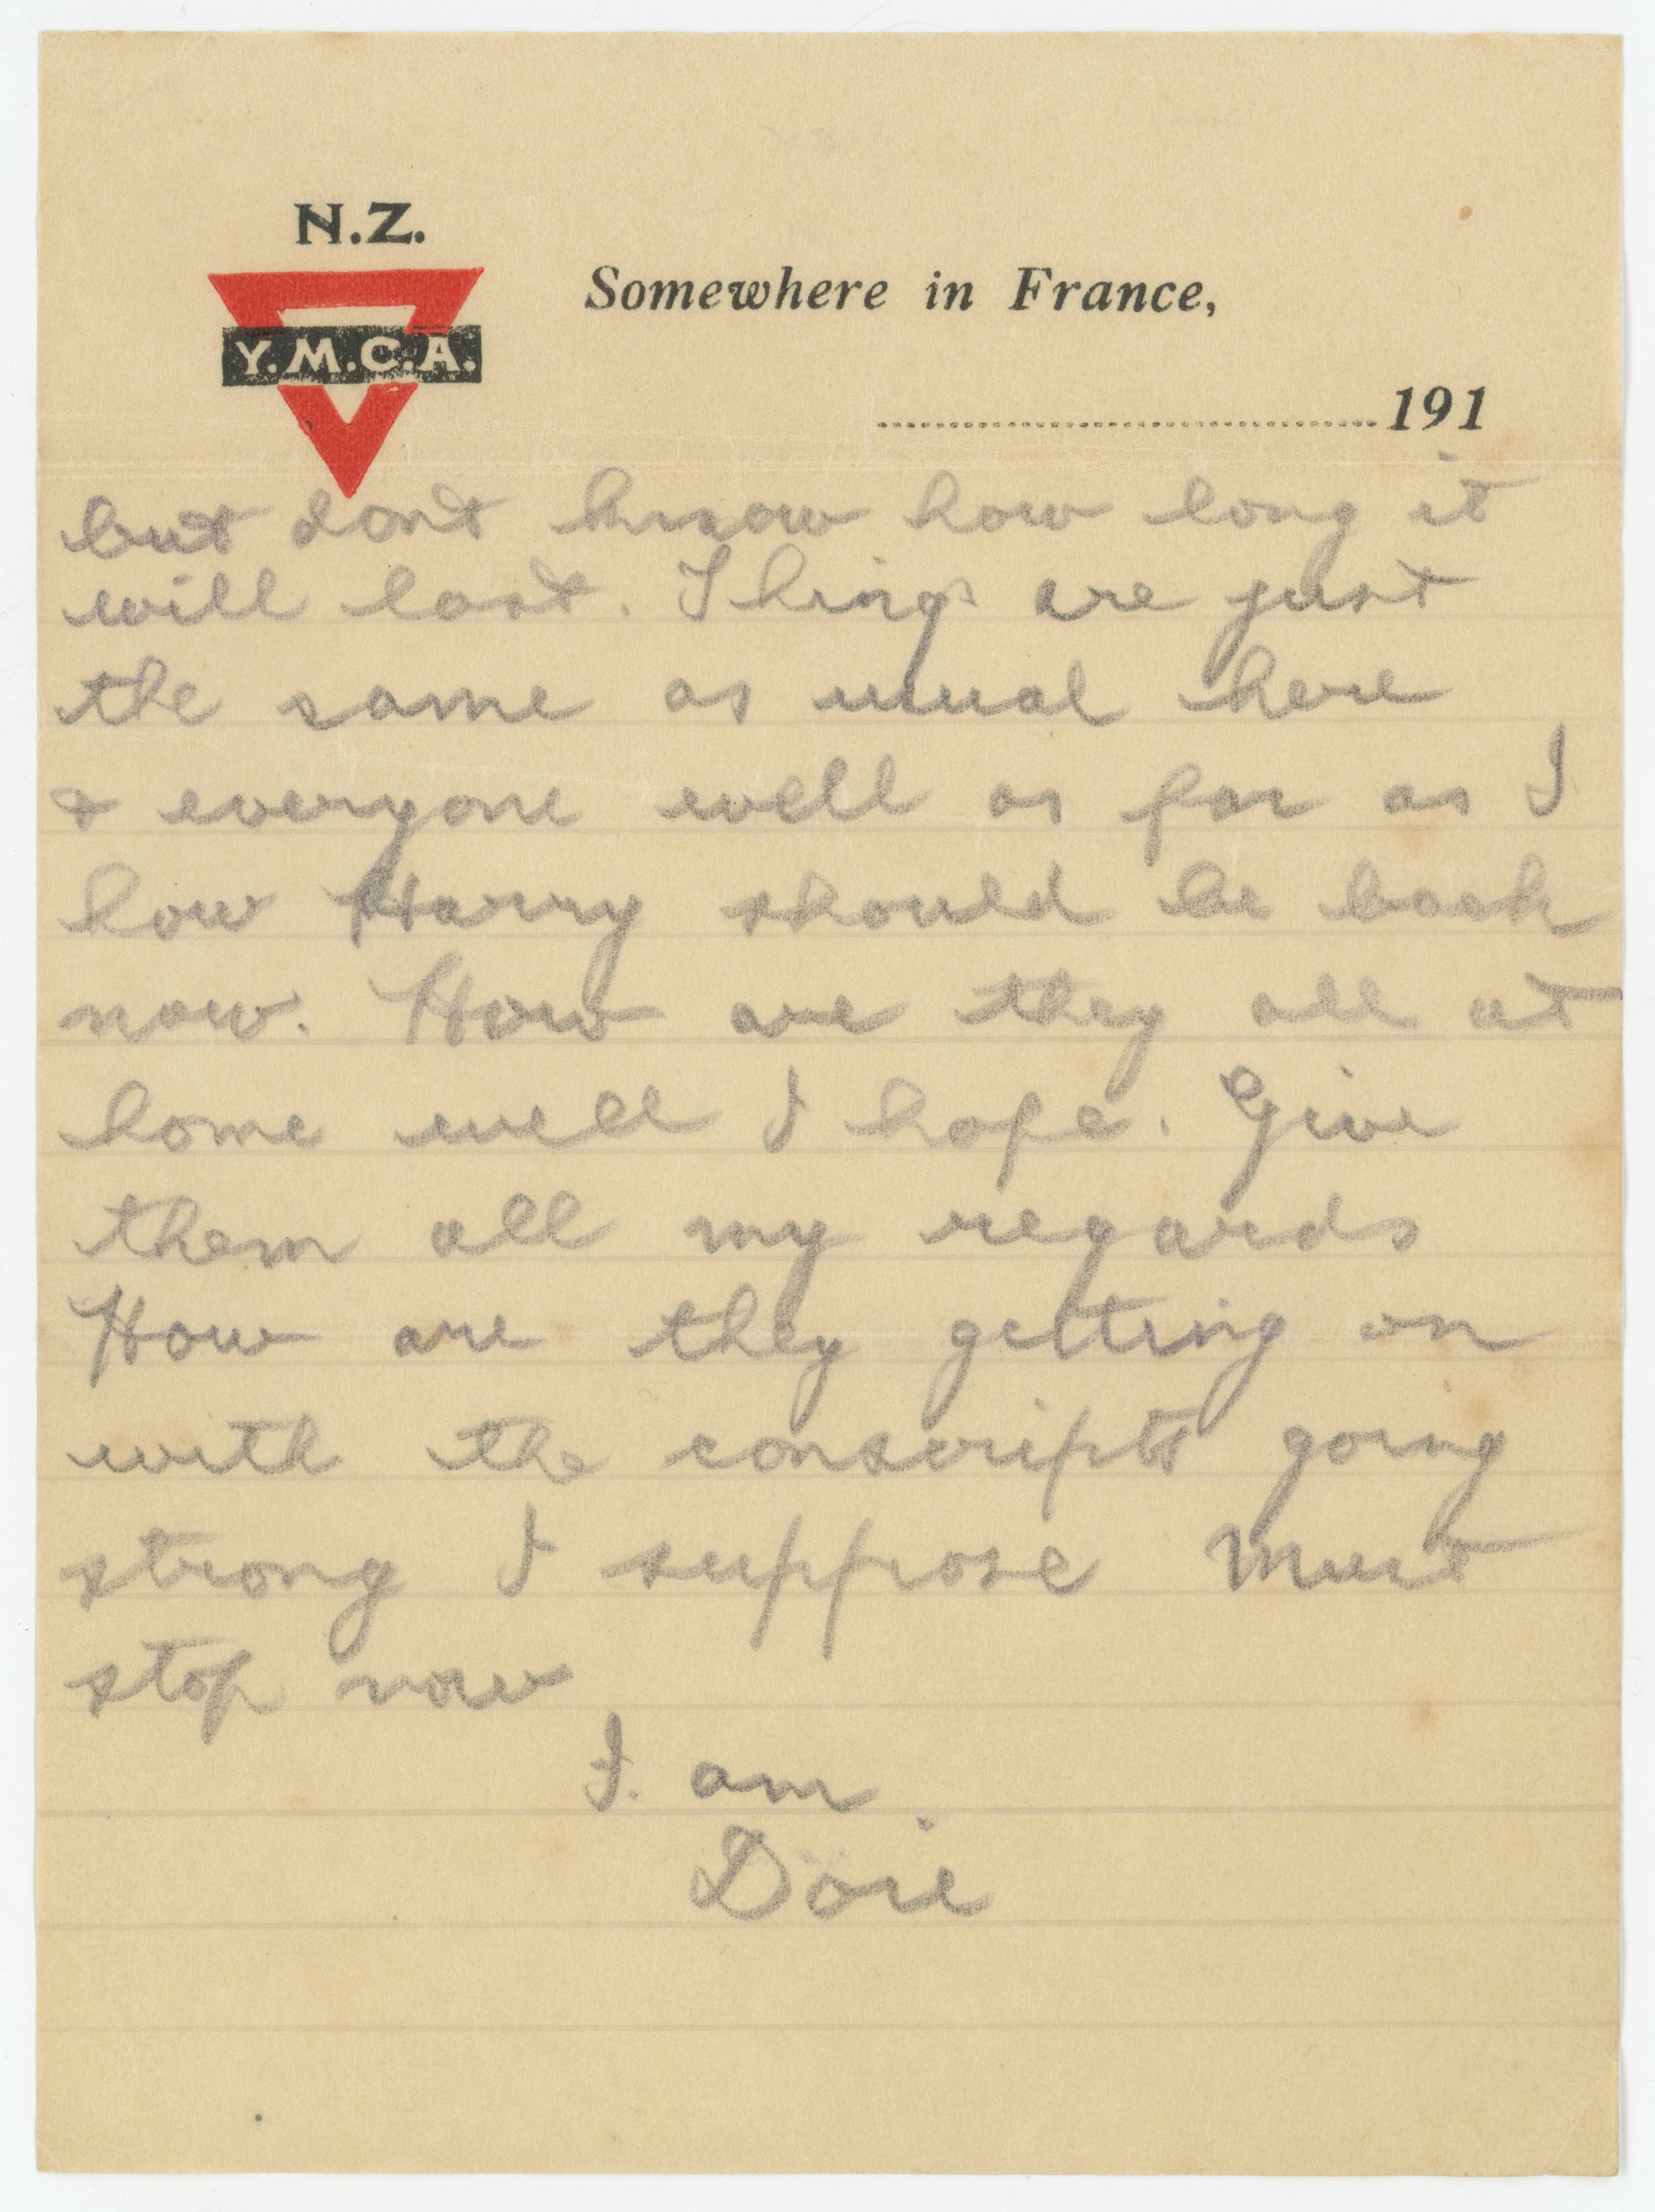 N.Z.
Y.M.C.A.
Somewhere in France,
........................................191
but dont know how long it
will last. Things are just
the same as usual here
& everyone well as far as I
how Harry should be back
now. How are they all at
home well I hope. Give
them all my regards
How are they getting on
with the conscripts going
strong I suppose Must
stop now
I. am.
Dore